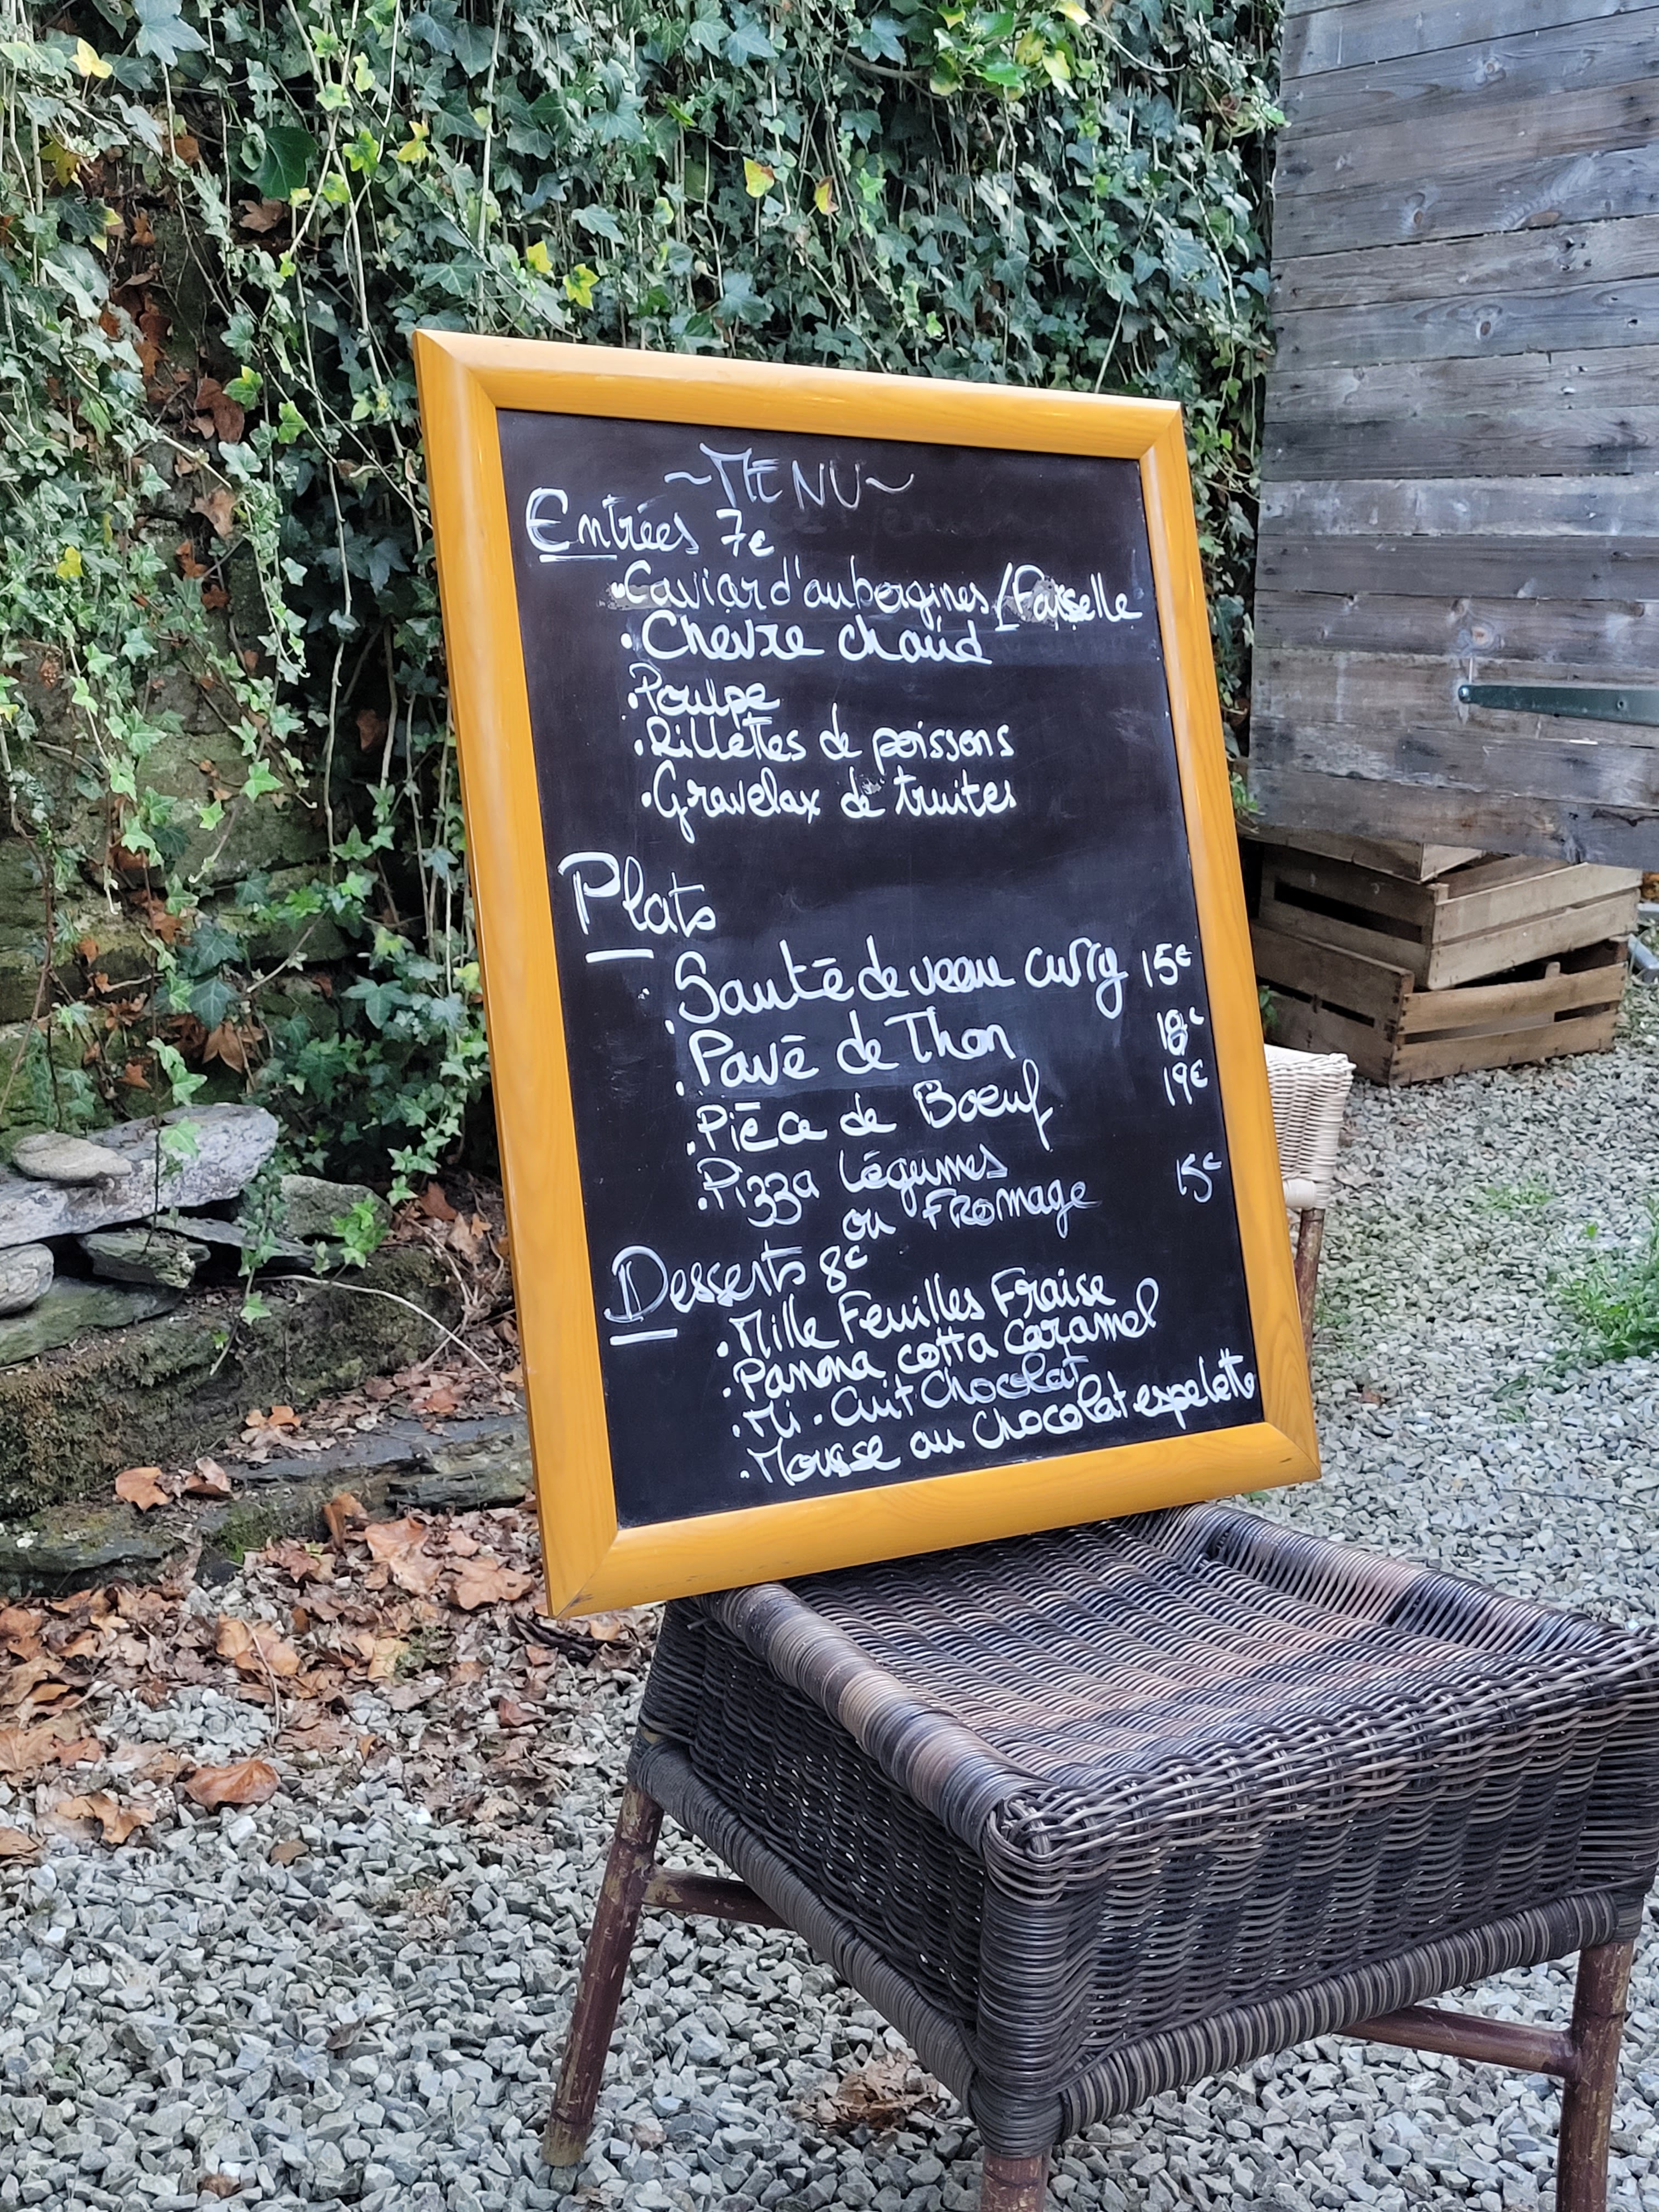 ~MENU~
Entrées 7€
•Caviar d'aubergines/Faisselle
•Chevre chaud
•Poulpe
•Rillettes de poissons
•Gravelax de truites
Plats
•Sauté de veau curry 15€
•Pavé de Thon 18€
•Pièce de Boeuf 19€
•Pizza légumes
ou Fromage 15€
Desserts 8€
•Mille Feuilles Fraise
•Panna cotta caramel
•Mi-Cuit Chocolat
•Mousse au Chocolat espelette